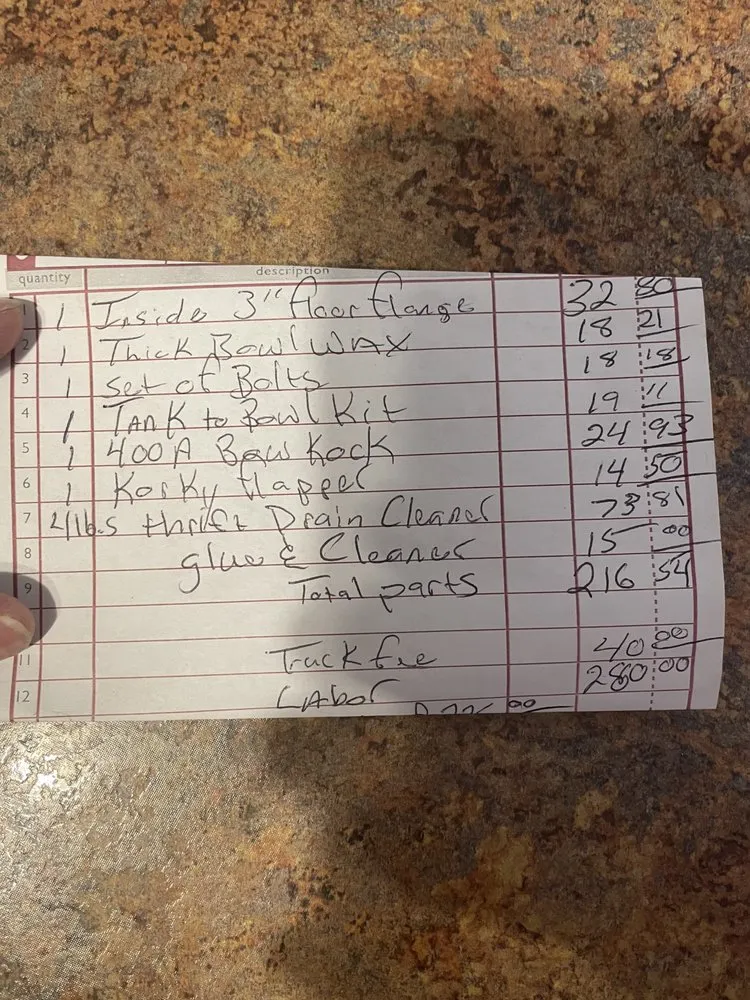 quantity description
1 1 Inside 3" floor flange 32 80
2 1 Thick Bowl WAX 18 21
3 1 Set of Bolts 18 18
4 1 TANK to Bowl Kit 19 11
5 1 400A Baw Kock 24 93
6 1 Korky flapper 14 50
7 4lbs thrift Drain Cleaner 73 81
8 glue & Cleaner 15 00
9 Total parts 216 54
11 Truck fee 40 00
12 LAbor 280 00
00